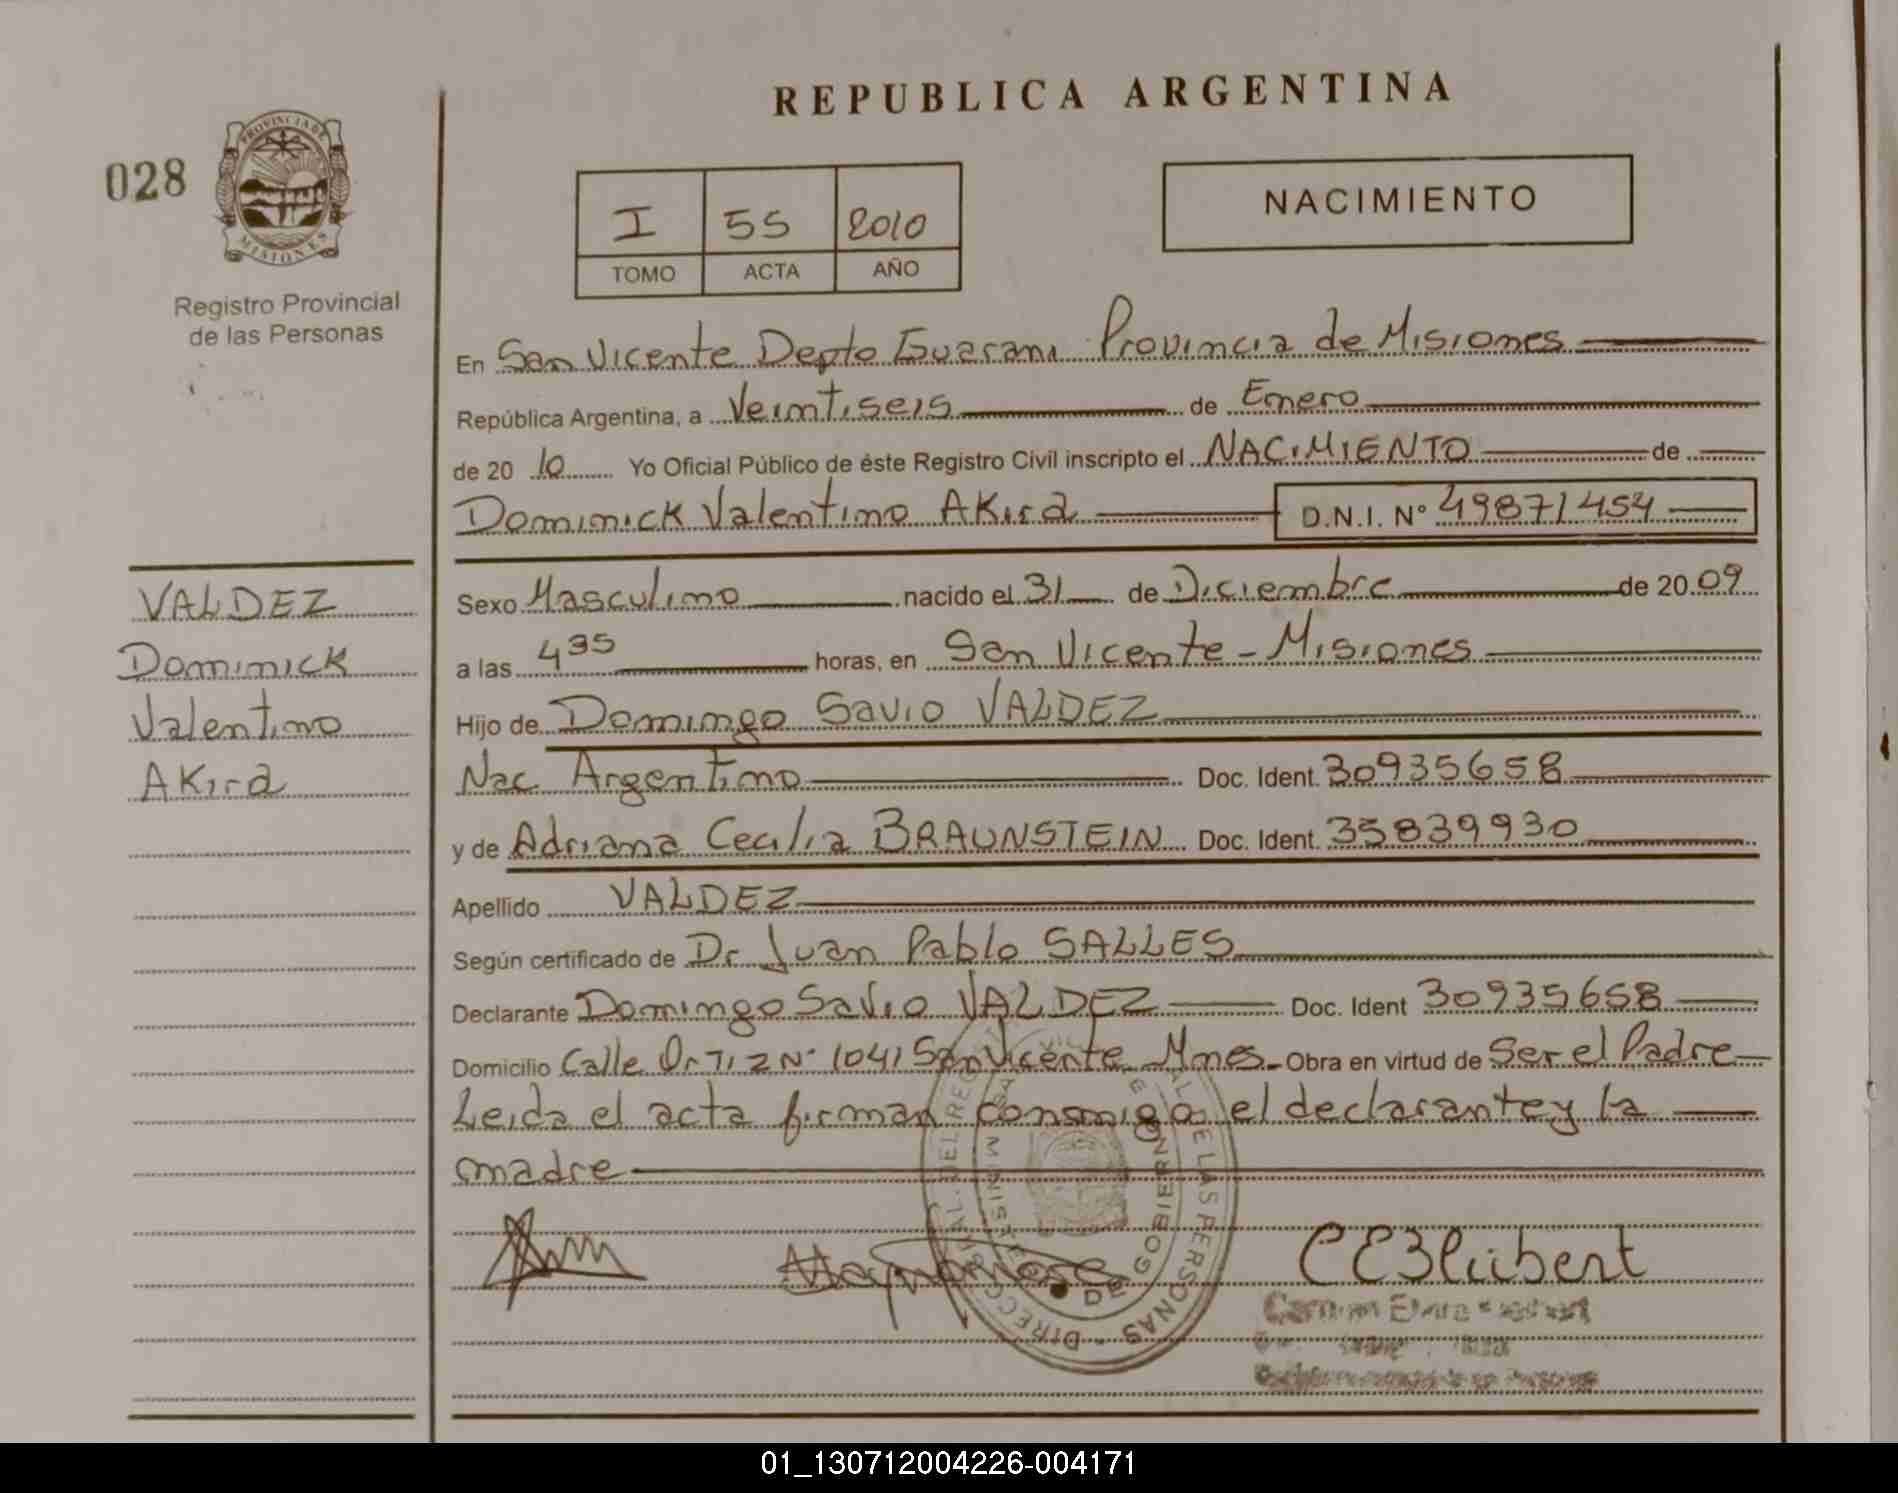 REPUBLICA ARGENTINA
028
PROVINCIA DE
MISIONES
Registro Provincial
de las Personas
I 55 2010
TOMO ACTA AÑO
NACIMIENTO
En San Vicente Depto Guarani Provincia de Misiones
República Argentina, a Veintiseis de Enero
de 20 10 Yo Oficial Público de éste Registro Civil inscripto el NACIMIENTO de
Dominick Valentino Akira D.N.I. N° 49871454
VALDEZ
Dominick
Valentino
Akira
Sexo Masculino nacido el 31 de Diciembre de 20 09
a las 4 35 horas, en San Vicente - Misiones
Hijo de Domingo Savio VALDEZ
Nac. Argentino Doc. Ident. 30935658
y de Adriana Cecilia BRAUNSTEIN Doc. Ident. 35839930
Apellido VALDEZ
Según certificado de Dr Juan Pablo SALLES
Declarante Domingo Savio VALDEZ Doc. Ident 30935658
Domicilio Calle Ortiz N° 1041 San Vicente Mnes. Obra en virtud de Ser el Padre
Leida el acta firman conmigo el declarante y la
madre
01_130712004226-004171